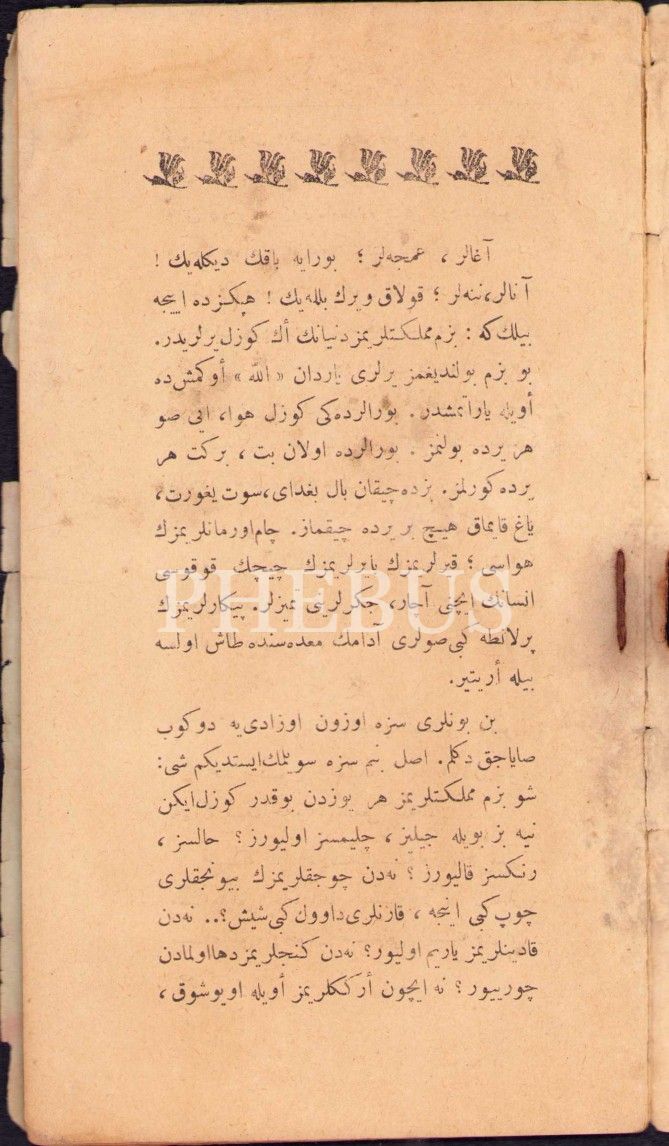 آغالر ، عمجه‌لر ؛ بورایه باقك دیكله‌یك !
آنالر، ننه‌لر ؛ قولاق ویرك بلله‌یك ! هپكزده اییجه
بیلك كه : بزم مملكتلریمز دنیانك أك كوزل یرلریدر.
بو بزم بولندیغمز یرلری یاردان « الله » أوكمش ده
أویله یاراتمشدر . بورالرده‌كی كوزل هوا، ایی صو
هر یرده بولنمز . بورالرده اولان بت ، بركت هر
یرده كورلمز. بزده چیقان بال بغدای، سوت یغورت،
یاغ قایماق هیچ بر یرده چیقماز. چام اورمانلریمزك
هواسی ؛ قیرلریمزك بایرلریمزك چیچك قوقوسی
PHEBUS
انسانك ایچنی آچار، جكرلرینی تمیزلر. پیكارلریمزك
پرلانطه كبی صولری آدامك معده‌سنده طاش اولسه
بیله أریتیر.
بن بونلری سزه اوزون اوزادی‌یه دوكوب
صایاجق دكلم. اصل بنم سزه سویلمك ایستدیكم شی:
شو بزم مملكتلریمز هر یوزدن بوقدر كوزل ایكن
نیه بز بویله جیلیز ، چلیمسز اولیورز ؟ حالسز ،
رنكسز قالیورز ؟ نه‌دن چوجقلریمزك بیونجقلری
چوپ كبی اینجه ، قارنلری داوول كبی شیش ؟.. نه‌دن
قادینلریمز یاریم اولیور؟ نه‌دن كنجلریمز دها اولمادن
چورییور ؟ نه ایچون أرككلریمز أویله اویوشوق ،